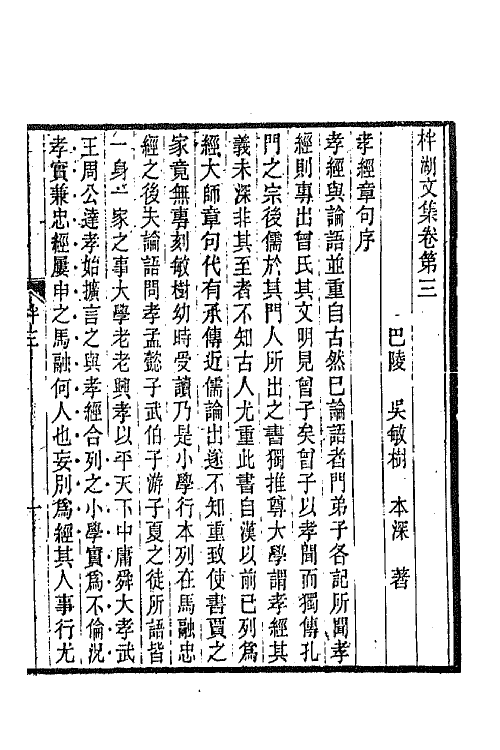 柈湖文集卷第三
巴陵　吳敏樹　本深　著
孝經章句序
孝經與論語並重自古然巳論語者門弟子各記所聞孝
經則專出曾氏其文明見曾子矣曾子以孝聞而獨傳孔
門之宗後儒於其門人所出之書獨推尊大學謂孝經其
義未深非其至者不知古人尤重此書自漢以前已列爲
經大師章句代有承傳近儒論出遂不知重致使書賈之
家竟無專刻敏樹幼時受讀乃是小學行本列在馬融忠
經之後夫論語問孝孟懿子武伯子游子夏之徒所語皆
一身一家之事大學老老興孝以平天下中庸舜大孝武
王周公達孝始擴言之與孝經合列之小學實爲不倫況
孝實兼忠經屢申之馬融何人也妄別爲經其人事行尤